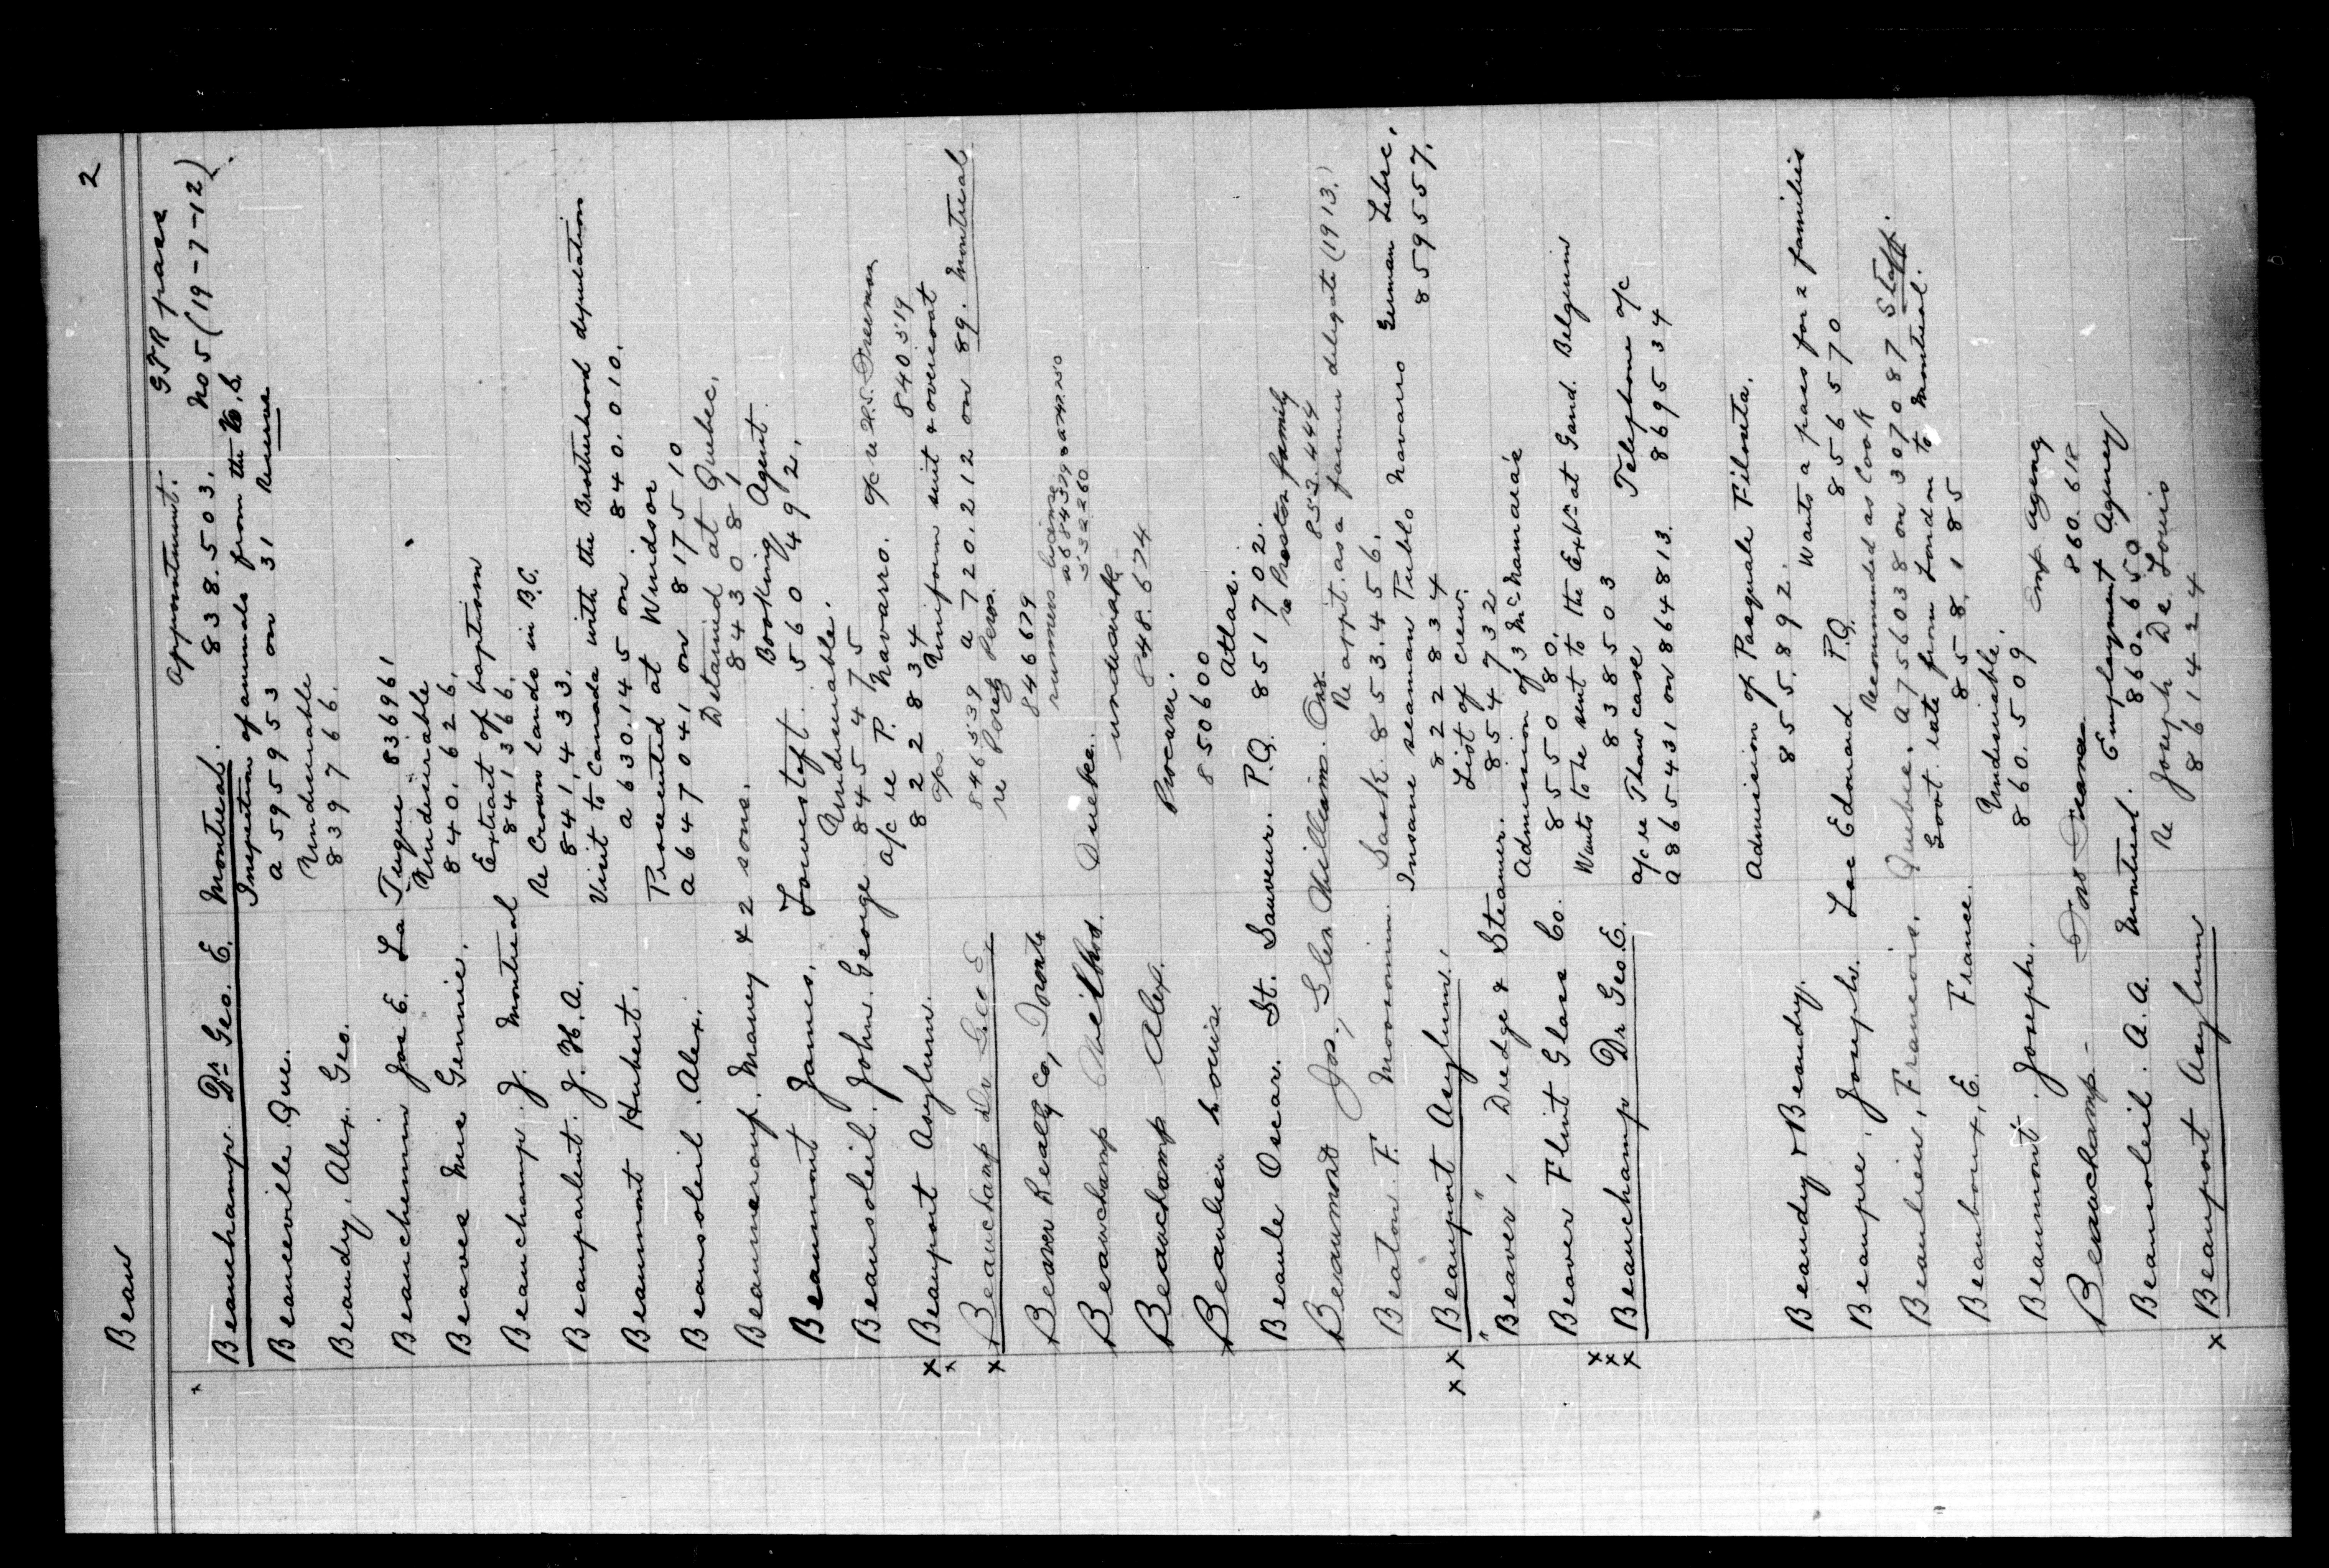 Beau 2
Appointment. GTR pass
x Beauchamp. Dr. Geo. E. Montreal. 838.503. No 5 (19-7-12)
Inspection of animals from the U.S.
Beauceville Que. a 595953 on 31 Reserve
Undesirable
Beaudry, Alex. Geo. 839766.
Beauchemin Jos E. La Tuque 836961
Undesirable
Beaves Mrs Gennie. 840.626.
Extract of baptism
Beauchamp. J. Montreal 841366.
Re Crown lands in B.C.
Beauparlent. J. H. A. 841,433.
Visit to Canada with the Brotherhood deputation
Beaumont Hubert. a 630.145 on 840.010.
Prosecuted at Windsor
Beausoleil. Alex. a 647041 on 817510
Detained at Quebec.
Mary & 2 sons. 843081
Booking Agent.
Beaumont James. Lowestoft. 560492.
Undesirable.
Beausoleil. John George 845475
a/c re P. Navarro. 840519
xx Beauport Asylum. 822834
Uniform suit & overcoat
x Beauchamp Dr Geo E 846539 a 720.212 on 89. Montreal
re Poretz Peros.
Beaver Realty Co, Toronto 846679
runners license
Beauchamp Wilbrod. Quebec.
undesirable
848.674
Beauchamp Alex.
Procurer.
Beaulieu Louise. 850600
Atlas.
Beaule Oscar. St. Sauveur. P.Q. 851702.
re Preston family
Beaumont Jos, Glen William. Ont. 853.444
Re appt. as a farmer delegate (1913.)
Beaton. F. Moosomin. Sask. 853.456.
Insane seaman Pablo Navarro German Lebre,
xx Beauport Asylum. 822834 859557.
List of crew.
"Beaver", Dredge & Steamer. 854732
Admission of 3 McNamara's
Beaver Flint Glass Co. 855080.
Wants to be sent to the Exbn at Gand. Belgium
xxx Beauchamp Dr Geo. E. 838503
a/c re Thaw case Telephone a/c
a 865431 on 864813. 869534
Admission of Pasquale Filoseta.
Beaudry & Beaudry. 855.892.
Wants a pass for 2 families
Beaupre. Joseph. Lac Edouard P.Q. 856570
Recommended as Cook
Beaulieu, Francois. Quebec. a756038 on 307087 Staff.
Govt. rate from London to Montreal.
E. France. 858,185
Undesirable.
Beaumont. Joseph. 860.509
Emp. Agency
Beauchamp - 860.618
Employment Agency
Beausoleil. A. A. Montreal. 860.650
Re Joseph De Louis
x Beauport Asylum 861424